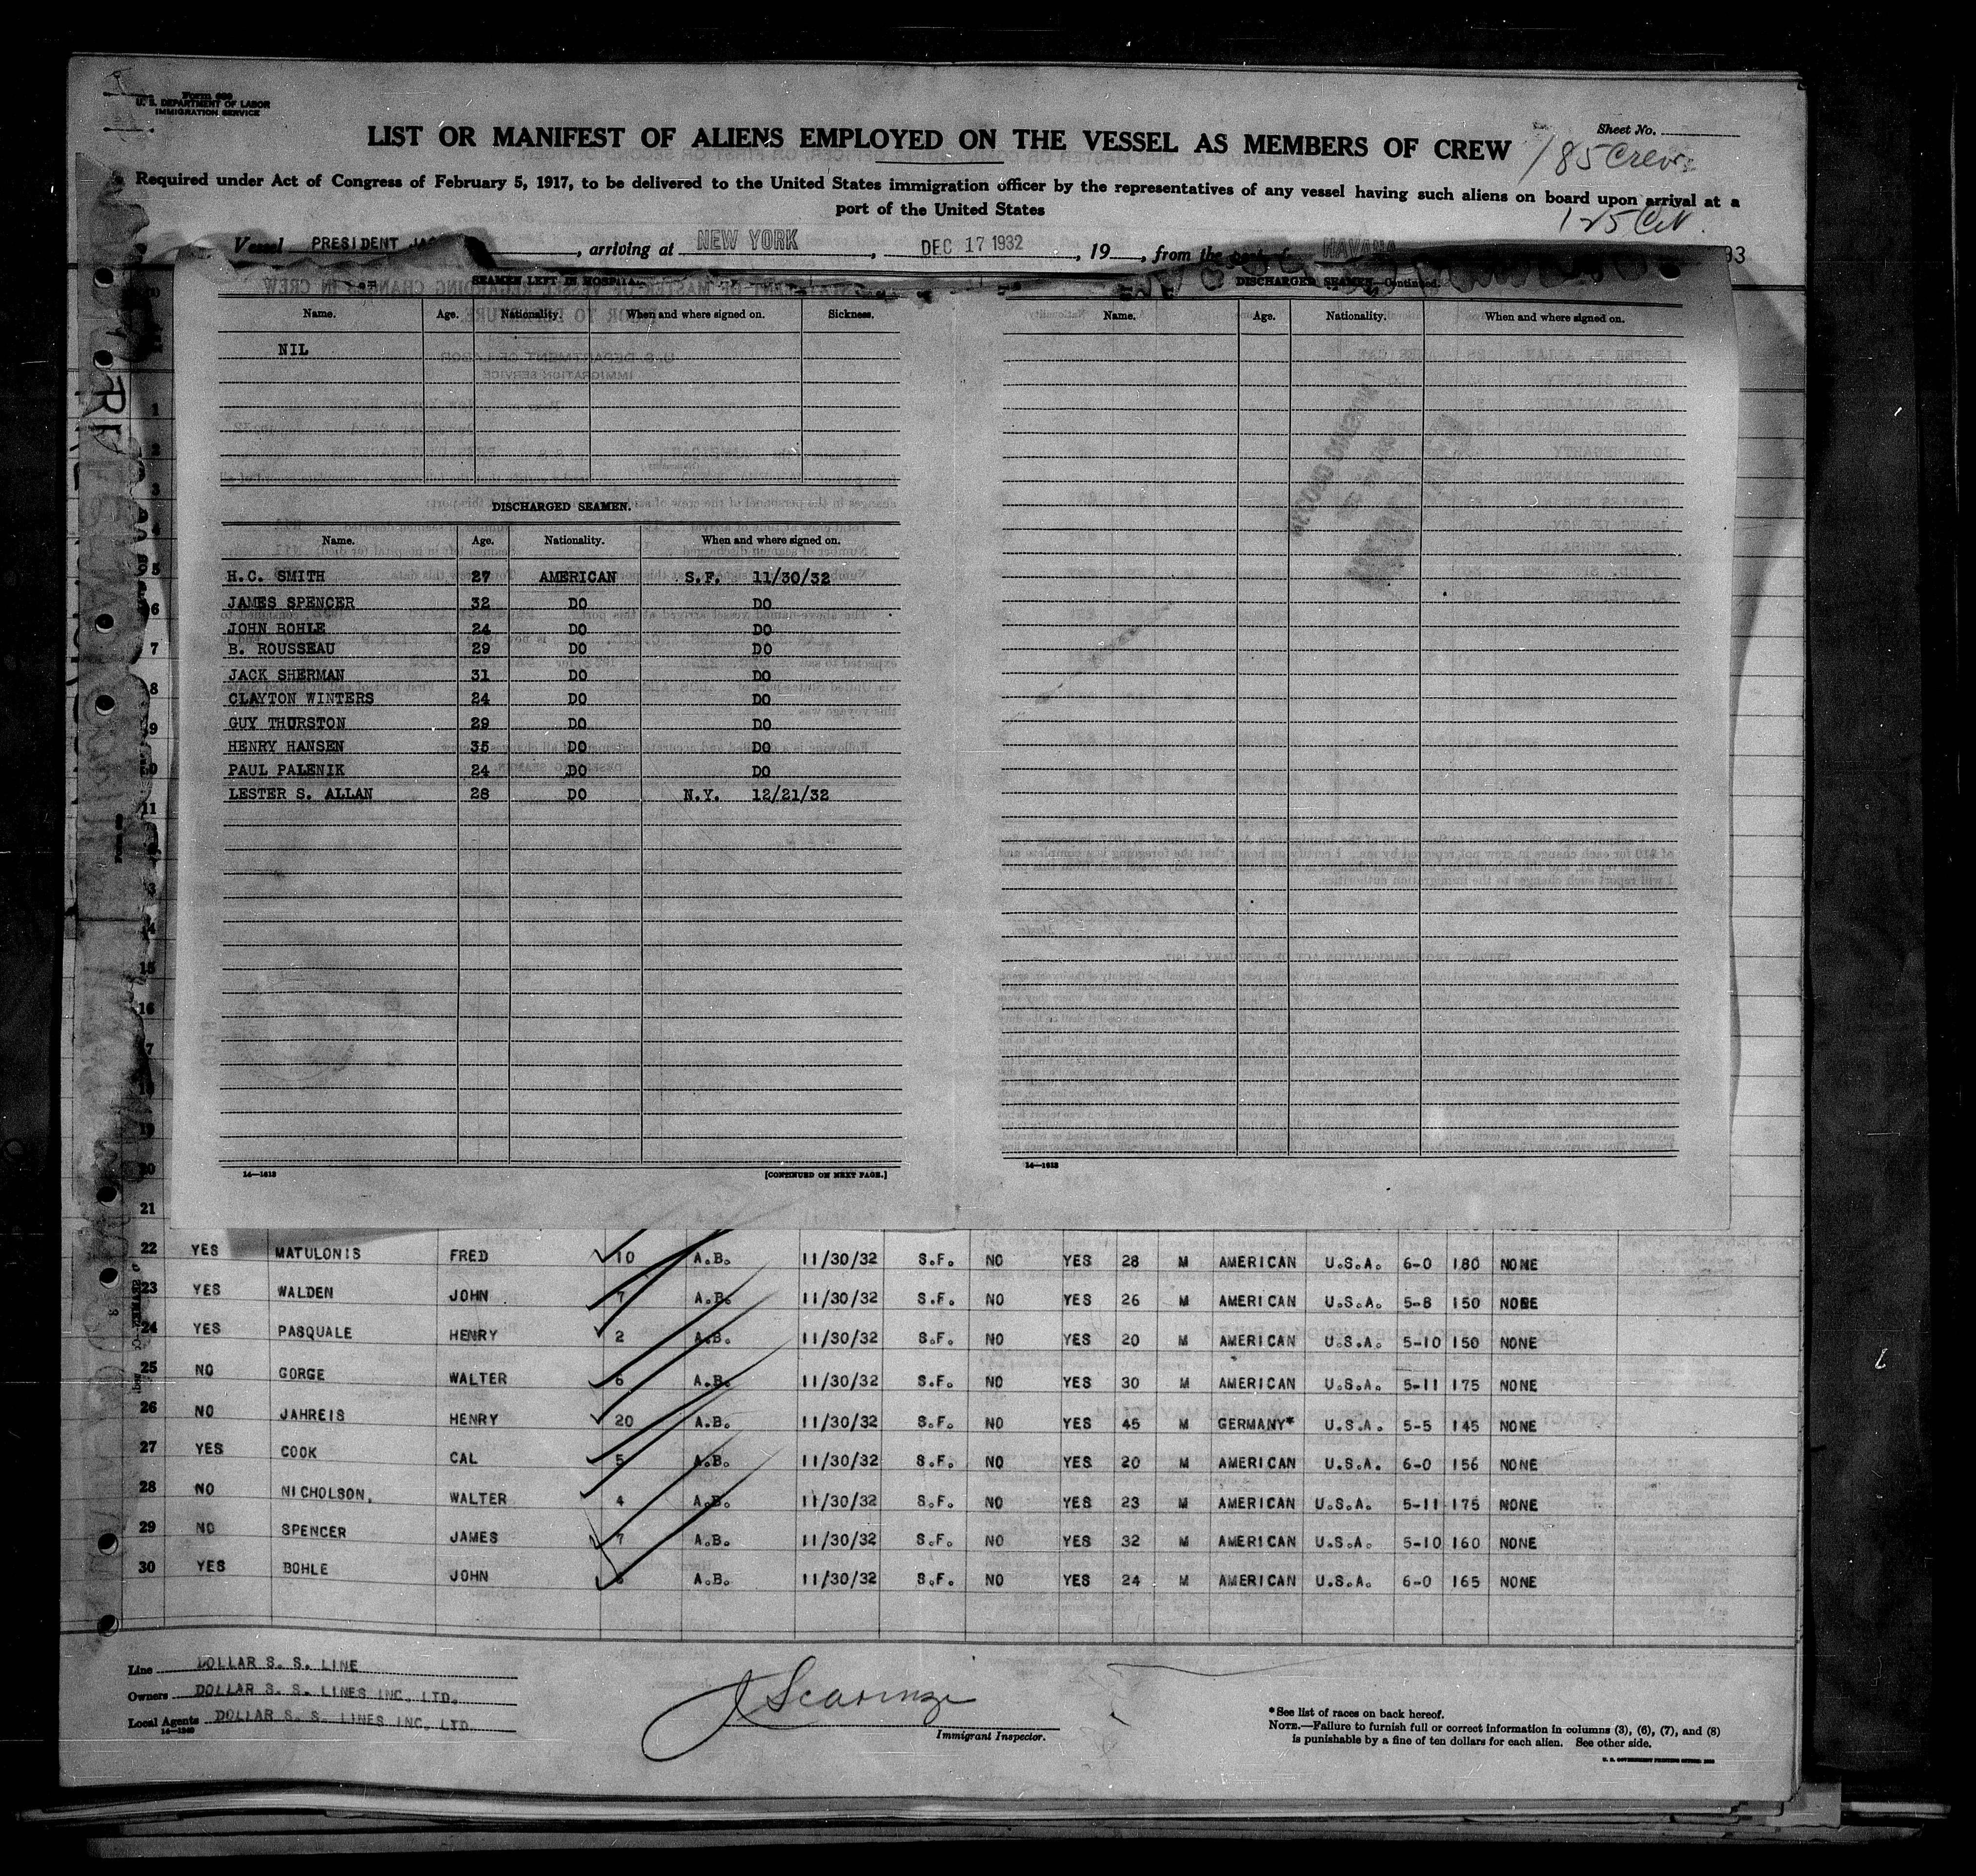 Form 689
U. S. DEPARTMENT OF LABOR
IMMIGRATION SERVICE
Sheet No.
LIST OR MANIFEST OF ALIENS EMPLOYED ON THE VESSEL AS MEMBERS OF CREW
185 Crew
Required under Act of Congress of February 5, 1917, to be delivered to the United States immigration officer by the representatives of any vessel having such aliens on board upon arrival at a
port of the United States
Vessel PRESIDENT , arriving at NEW YORK , DEC 17 1932 , 19 , from the port of HAVANA
SEAMEN LEFT IN HOSPITAL
Name. Age. Nationality. When and where signed on. Sickness.
NIL
DISCHARGED SEAMEN.
Name. Age. Nationality. When and where signed on.
H.C. SMITH 27 AMERICAN S.F. 11/30/32
JAMES SPENCER 32 DO DO
JOHN BOHLE 24 DO DO
B. ROUSSEAU 29 DO DO
JACK SHERMAN 31 DO DO
CLAYTON WINTERS 24 DO DO
GUY THURSTON 29 DO DO
HENRY HANSEN 35 DO DO
PAUL PALENIK 24 DO DO
LESTER S. ALLAN 28 DO N.Y. 12/21/32
14—1613 [CONTINUED ON NEXT PAGE.]
DISCHARGED SEAMEN—Continued.
Name. Age. Nationality. When and where signed on.
14—1613
21
22 YES MATULONIS FRED 10 A.B. 11/30/32 S.F. NO YES 28 M AMERICAN U.S.A. 6-0 180 NONE
23 YES WALDEN JOHN 7 A.B. 11/30/32 S.F. NO YES 26 M AMERICAN U.S.A. 5-8 150 NONE
24 YES PASQUALE HENRY 2 A.B. 11/30/32 S.F. NO YES 20 M AMERICAN U.S.A. 5-10 150 NONE
25 NO GORGE WALTER 6 A.B. 11/30/32 S.F. NO YES 30 M AMERICAN U.S.A. 5-11 175 NONE
26 NO JAHREIS HENRY 20 A.B. 11/30/32 S.F. NO YES 45 M GERMANY* U.S.A. 5-5 145 NONE
27 YES COOK CAL 5 A.B. 11/30/32 S.F. NO YES 20 M AMERICAN U.S.A. 6-0 156 NONE
28 NO NICHOLSON, WALTER 4 A.B. 11/30/32 S.F. NO YES 23 M AMERICAN U.S.A. 5-11 175 NONE
29 NO SPENCER JAMES 7 A.B. 11/30/32 S.F. NO YES 32 M AMERICAN U.S.A. 5-10 160 NONE
30 YES BOHLE JOHN A.B. 11/30/32 S.F. NO YES 24 M AMERICAN U.S.A. 6-0 165 NONE
Line DOLLAR S. S. LINE
Owners DOLLAR S. S. LINES INC. LTD.
Local Agents DOLLAR S. S. LINES INC. LTD.
14—1240
Immigrant Inspector.
*See list of races on back hereof.
NOTE.—Failure to furnish full or correct information in columns (3), (6), (7), and (8)
is punishable by a fine of ten dollars for each alien. See other side.